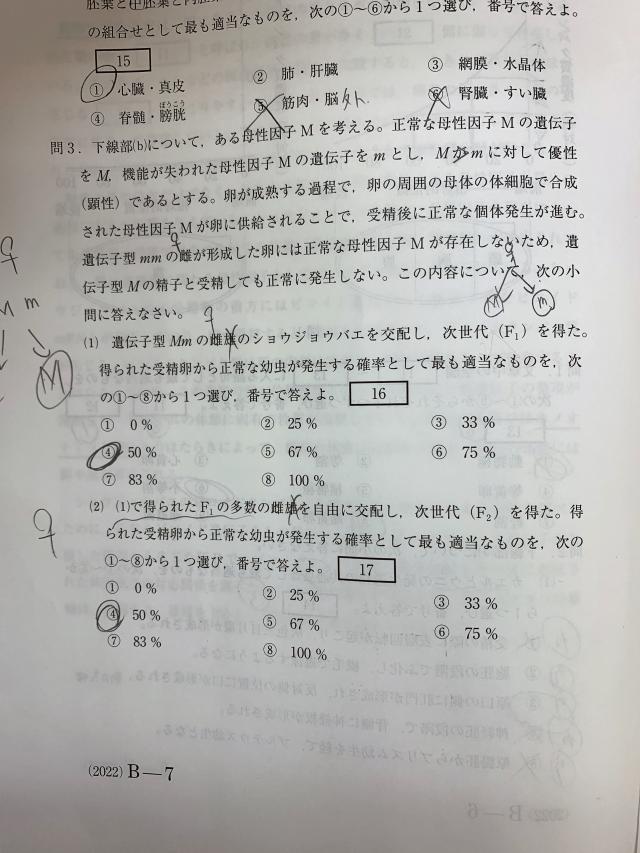 胚葉と中胚葉と内胚
の組合せとして最も適当なものを，次の①～⑥から1つ選び，番号で答えよ。
15
① 心臓・真皮 ② 肺・肝臓 ③ 網膜・水晶体
④ 脊髄・膀胱 ⑤ 筋肉・脳 外 ⑥ 腎臓・すい臓
ぼうこう
問3．下線部(b)について，ある母性因子Mを考える。正常な母性因子Mの遺伝子
をM，機能が失われた母性因子Mの遺伝子をmとし，Mがmに対して優性
(顕性)であるとする。卵が成熟する過程で，卵の周囲の母体の体細胞で合成
された母性因子Mが卵に供給されることで，受精後に正常な個体発生が進む。
遺伝子型mmの雌が形成した卵には正常な母性因子Mが存在しないため，遺
伝子型Mの精子と受精しても正常に発生しない。この内容について，次の小
問に答えなさい。
♀
♀
M m
♀
M m
M
♀
(1) 遺伝子型Mmの雌雄のショウジョウバエを交配し，次世代（F₁）を得た。
得られた受精卵から正常な幼虫が発生する確率として最も適当なものを，次
の①～⑧から1つ選び，番号で答えよ。 16
① 0％ ② 25％ ③ 33％
④ 50％ ⑤ 67％ ⑥ 75％
⑦ 83％ ⑧ 100％
(2) (1)で得られたF₁の多数の雌雄を自由に交配し，次世代（F₂）を得た。得
♀
られた受精卵から正常な幼虫が発生する確率として最も適当なものを，次の
①～⑧から1つ選び，番号で答えよ。 17
① 0％ ② 25％ ③ 33％
④ 50％ ⑤ 67％ ⑥ 75％
⑦ 83％ ⑧ 100％
(2022) B―7